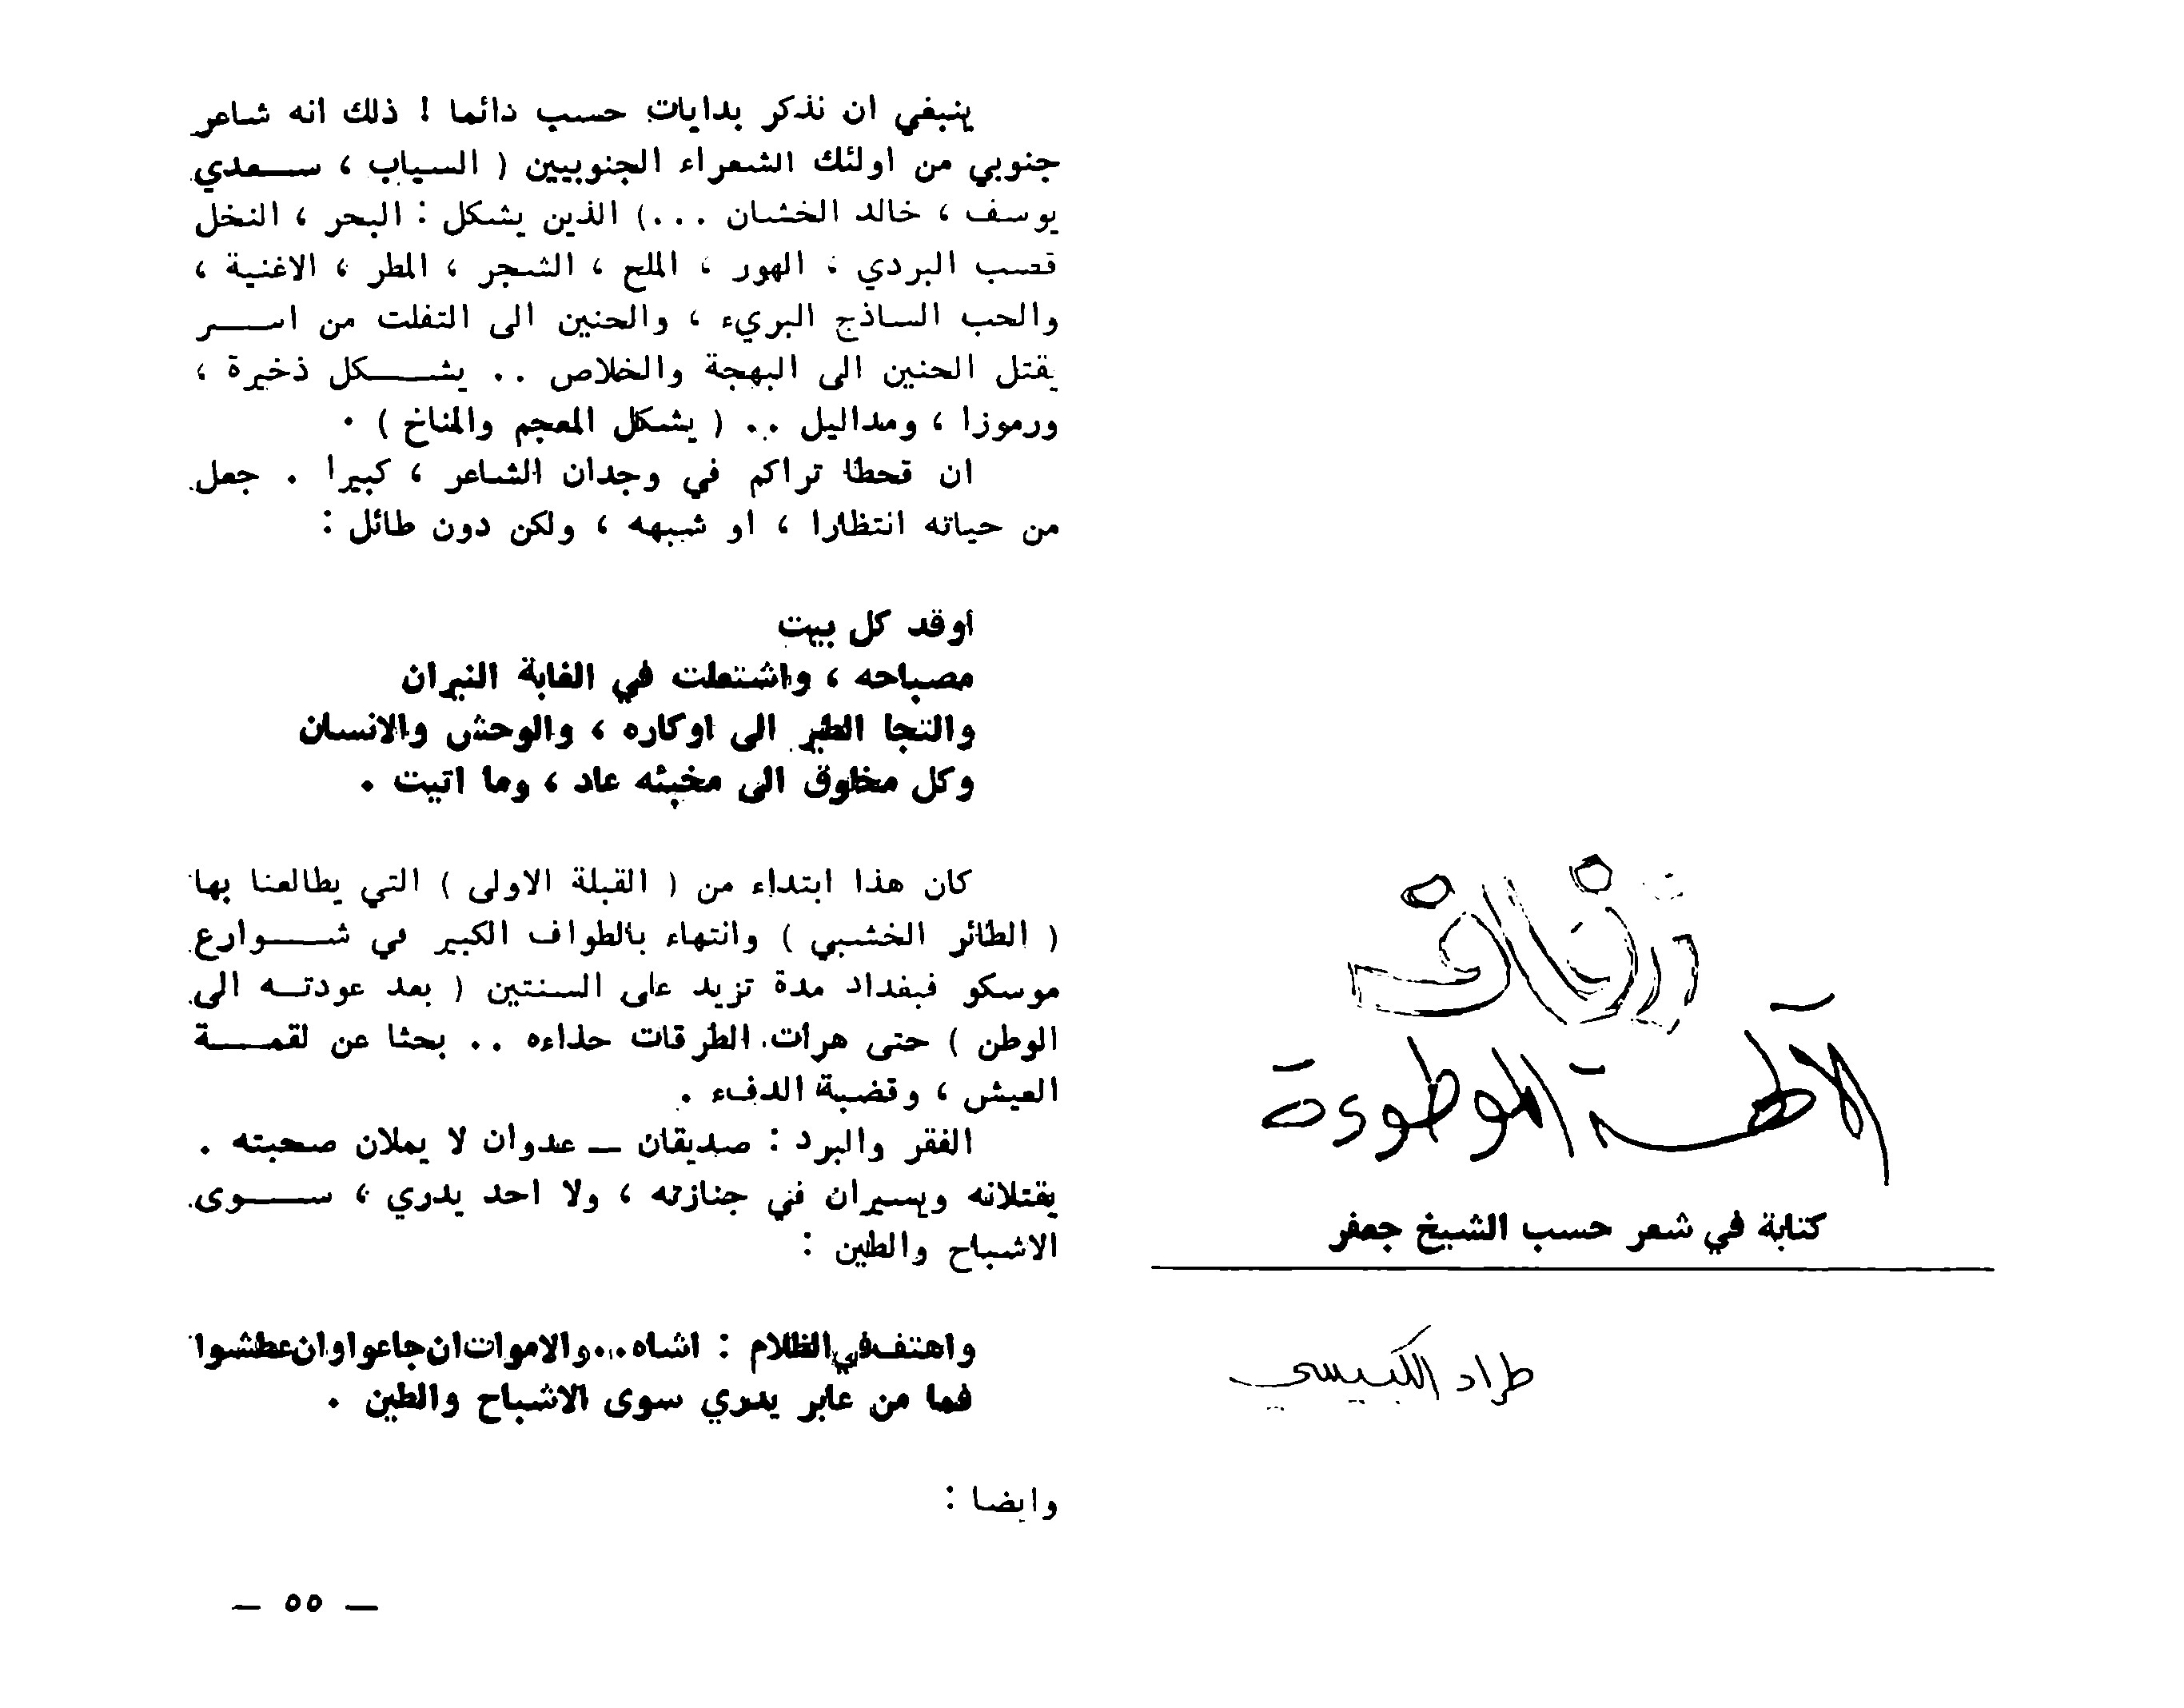 زفاف
الآلهة الموطوءة
كتابة في شعر حسب الشيخ جعفر
طراد الكبيسي
ينبغي ان نذكر بدايات حسب دائما ! ذلك انه شاعر
جنوبي من اولئك الشعراء الجنوبيين ( السياب ، سعدي
يوسف ، خالد الخشان ...) الذين يشكل : البحر ، النخل
قصب البردي ، الهور ، الملح ، الشجر ، المطر ، الاغنية ،
والحب الساذج البريء ، والحنين الى التفلت من اسر
يقتل الحنين الى البهجة والخلاص .. يشكل ذخيرة ،
ورموزا ، ومداليل .. ( يشكل المعجم والمناخ ) .
ان قحطا تراكم في وجدان الشاعر ، كبيرا . جعل
من حياته انتظارا ، او شبهه ، ولكن دون طائل :
أوقد كل بيت
مصباحه ، واشتعلت في الغابة النيران
والتجا الطير الى اوكاره ، والوحش والانسان
وكل مخلوق الى مخبئه عاد ، وما اتيت .
كان هذا ابتداء من ( القبلة الاولى ) التي يطالعنا بها
( الطائر الخشبي ) وانتهاء بالطواف الكبير في شوارع
موسكو فبغداد مدة تزيد على السنتين ( بعد عودته الى
الوطن ) حتى هرأت الطرقات حذاءه .. بحثا عن لقمة
العيش ، وقضبة الدفء .
الفقر والبرد : صديقان — عدوان لا يملان صحبته .
يقتلانه ويسيران في جنازته ، ولا احد يدري ، سوى
الاشباح والطين :
واهتف في الظلام : اشاه... والاموات ان جاعوا وان عطشوا
فما من عابر يدري سوى الاشباح والطين .
وايضا :
— ٥٥ —